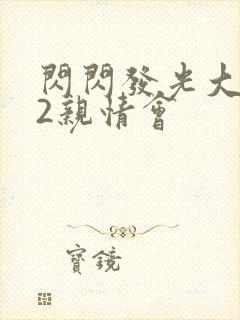 閃閃發光大
2親情會
寶鏡